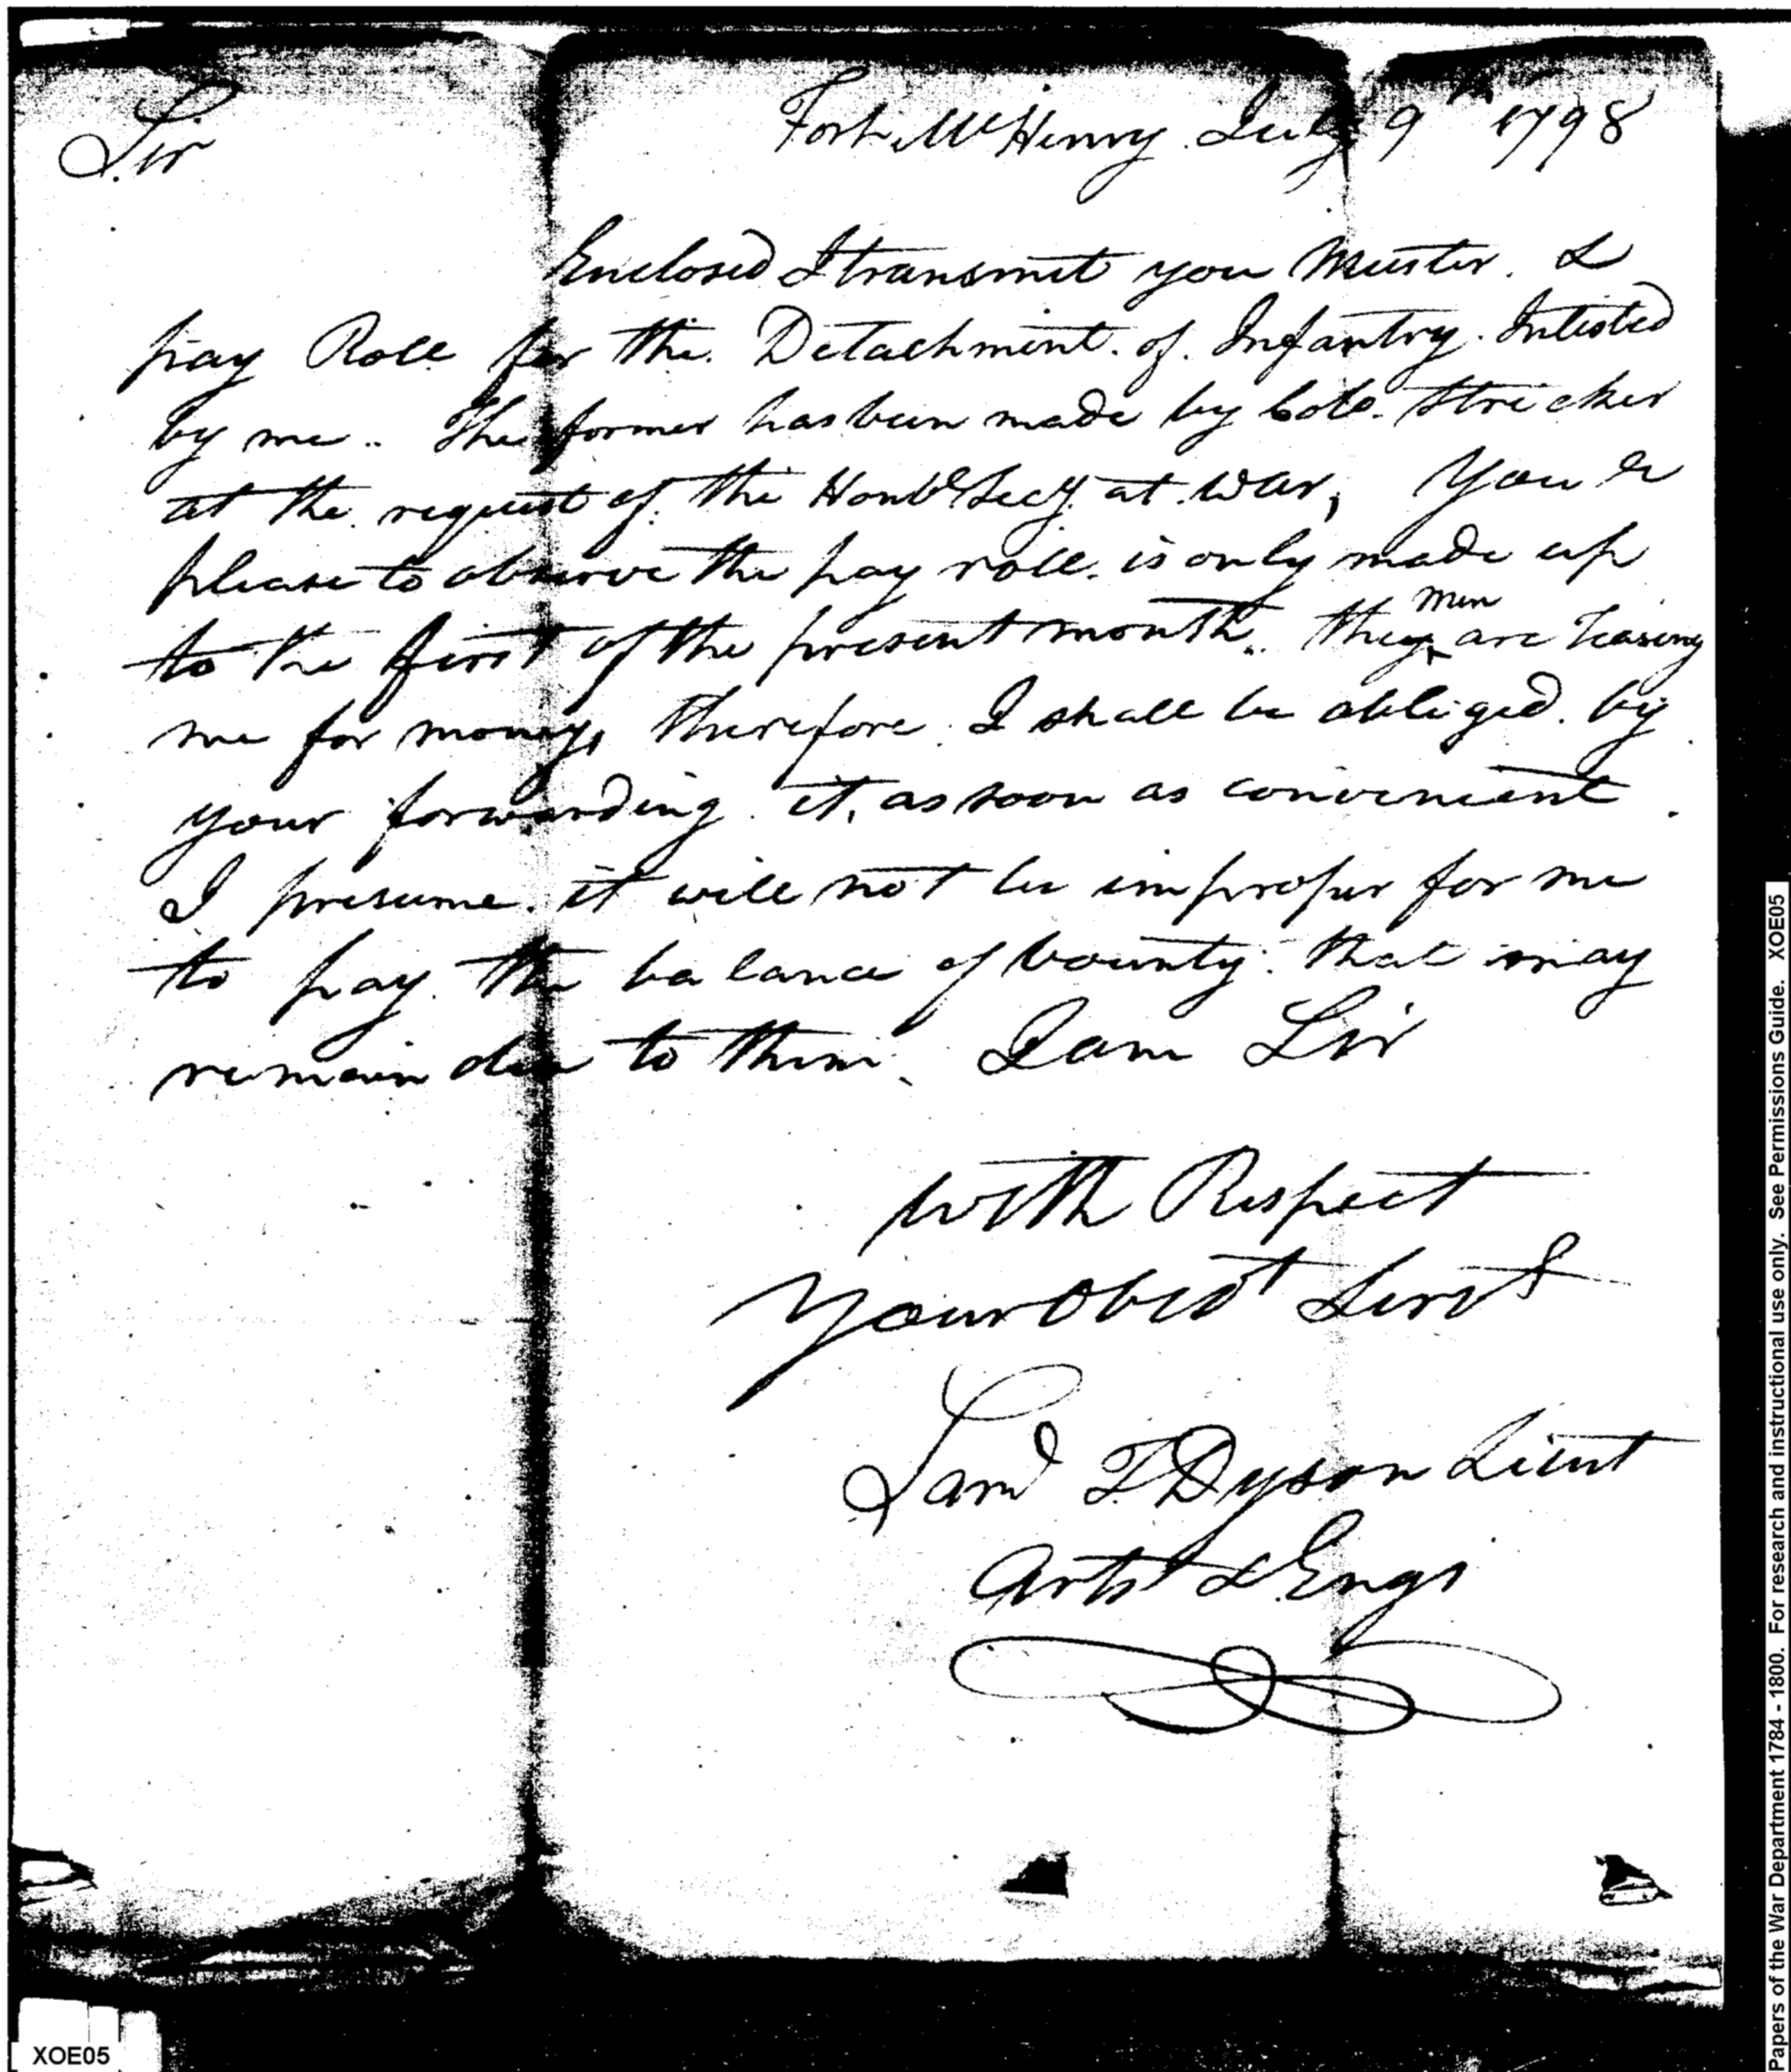 Sir
Fort McHenry July 9th 1798
Enclosed I transmit you Muster &
pay Roll for the Detachment of Infantry Inlisted
by me.. The former has been made by Colo. Stricker
at the request of the Honble Secy at War, You'l
please to observe the pay roll is only made up
to the first of the present month.. they men are teasing
me for money, therefore I shall be obliged by
your forwarding it, as soon as convenient.
I presume it will not be improper for me
to pay the balance of bounty that may
remain due to them. I am Sir
With Respect
Your Obedt Servt
Saml T Dyson Lieut
Artst & Engs
XOE05
Papers of the War Department 1784 - 1800. For research and instructional use only. See Permissions Guide. XOE05